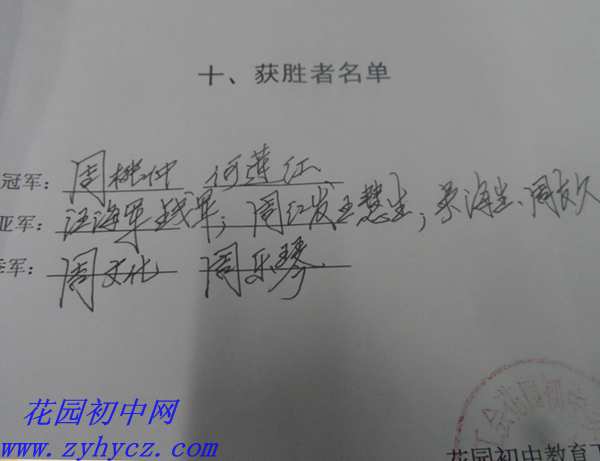 十、获胜者名单
冠军：周桃仲 何莲红
亚军：汪海军 钱军；周红发 王慧生；吴海生、周友久
季军：周文化 周乐琴
工会 花园初
花园初中教育工
花园初中网
www.zyhycz.com